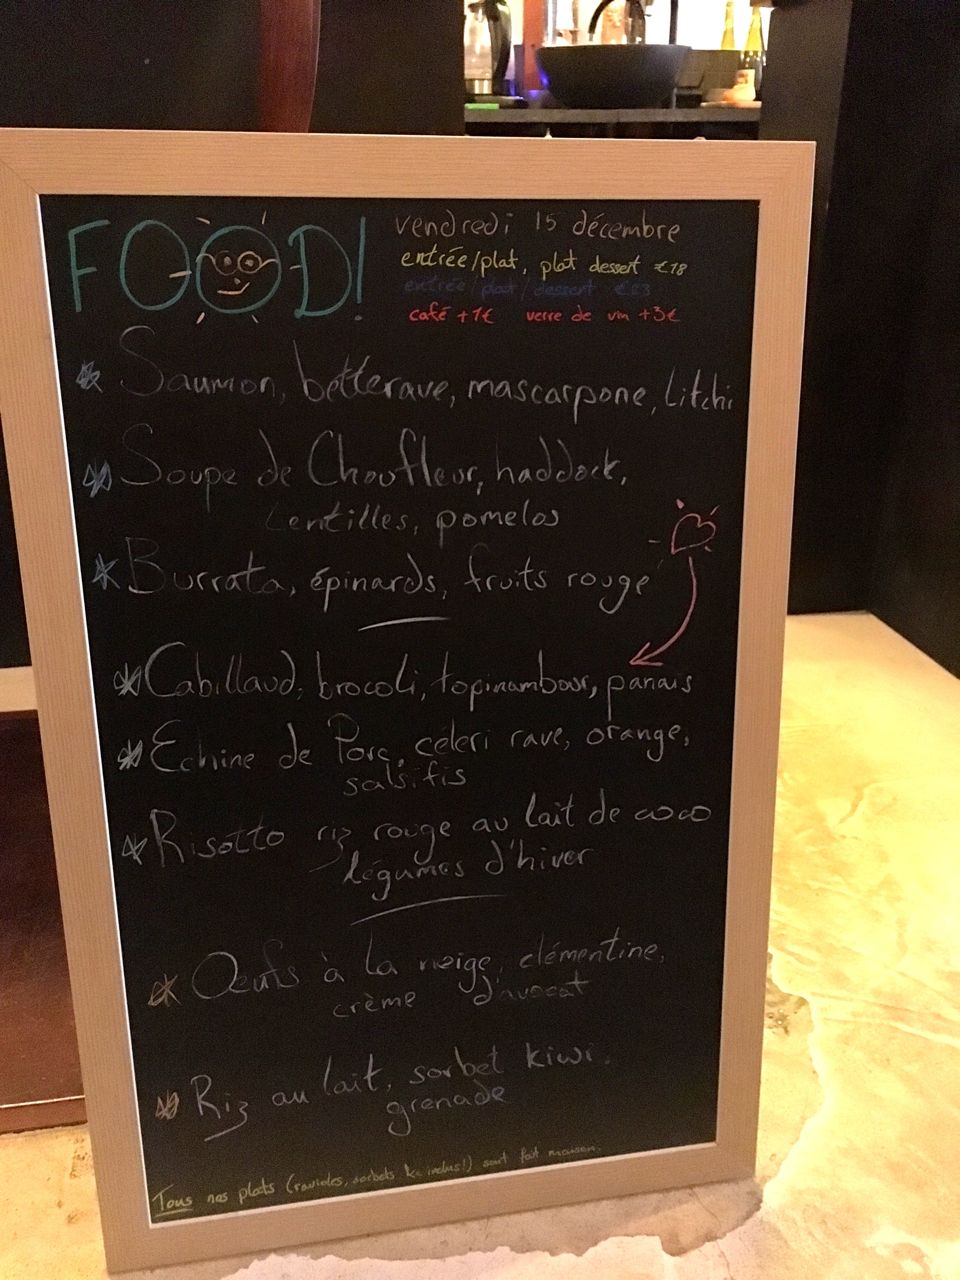 FOOD!
vendredi 15 décembre
entrée/plat, plat dessert €18
entrée/plat/dessert €23
café +1€ verre de vin +3€
Saumon, betterave, mascarpone, litchi
Soupe de Choufleur, haddock,
Lentilles, pomelos
Burrata, épinards, fruits rouge
Cabillaud, brocoli, topinambour, panais
Echine de Porc, céleri rave, orange,
salsifis
Risotto riz rouge au lait de coco
légumes d'hiver
Œufs à la neige, clémentine,
crème d'avocat
Riz au lait, sorbet kiwi,
grenade
Tous nos plats (ravioles, sorbets inclus!) sont fait maison.